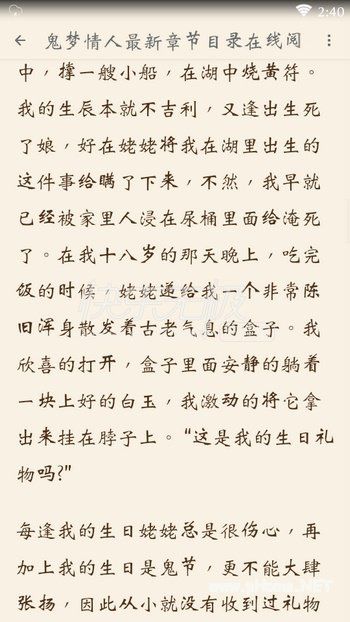 2:40
鬼梦情人最新章节目录在线阅
中，撑一艘小船，在湖中烧黄符。
我的生辰本就不吉利，又逢出生死
了娘，好在姥姥将我在湖里出生的
这件事给瞒了下来，不然，我早就
已经被家里人浸在尿桶里面给淹死
了。在我十八岁的那天晚上，吃完
饭的时候，姥姥递给我一个非常陈
旧浑身散发着古老气息的盒子。我
欣喜的打开，盒子里面安静的躺着
一块上好的白玉，我激动的将它拿
出来挂在脖子上。“这是我的生日礼
物吗?”
每逢我的生日姥姥总是很伤心，再
加上我的生日是鬼节，更不能大肆
张扬，因此从小就没有收到过礼物